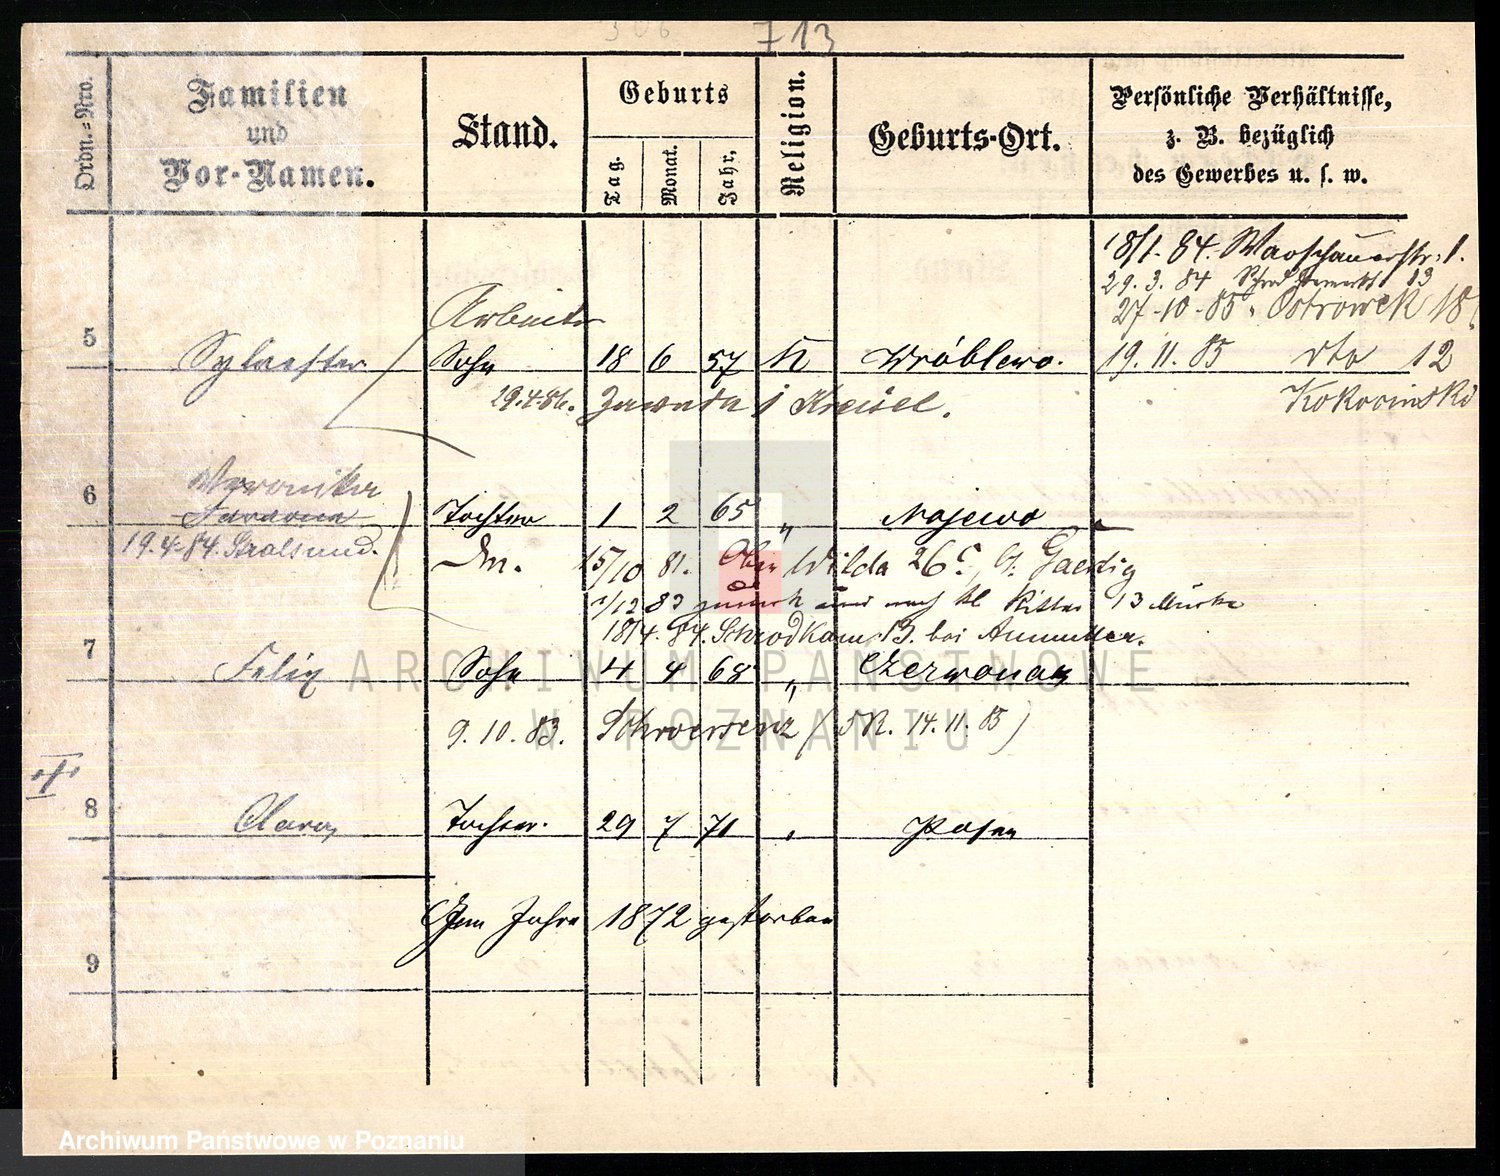 306 713
Ordn.=Nro.
Familien
und
Vor-Namen.
Stand.
Geburts
Tag.
Monat.
Jahr,
Religion.
Geburts-Ort.
Persönliche Verhältnisse,
z. B. bezüglich
des Gewerbes u. s. w.
18/1. 84. Warschauerstr. 1.
29. 3. 84 13
27-10-85. Ostrowek 18
Arbeiter
5 Sylvester Sohn 18 6 57 K Wróblewo. 19. 11. 85 dto 12
29.4.86. Zawada Kokocinski
6 Veronika
Tochter 1 2 65 " Majewo
19.4.84. Stralsund.
Dn. 15/10 81. Ober Wilda 26
1/12 83 zurück und nach Kl Ritter 13
18/4. 84. Schrodkam. 13. bei
7 Felix Sohn 4 4 68 " Czerwonak
9. 10. 83. Schwersenz ( 14. 11. 85 )
8 Clara Tochter. 29 7 71 " Posen
Im Jahre 1872 gestorben
9
ARCHIWUM PAŃSTWOWE
W POZNANIU
Archiwum Państwowe w Poznaniu